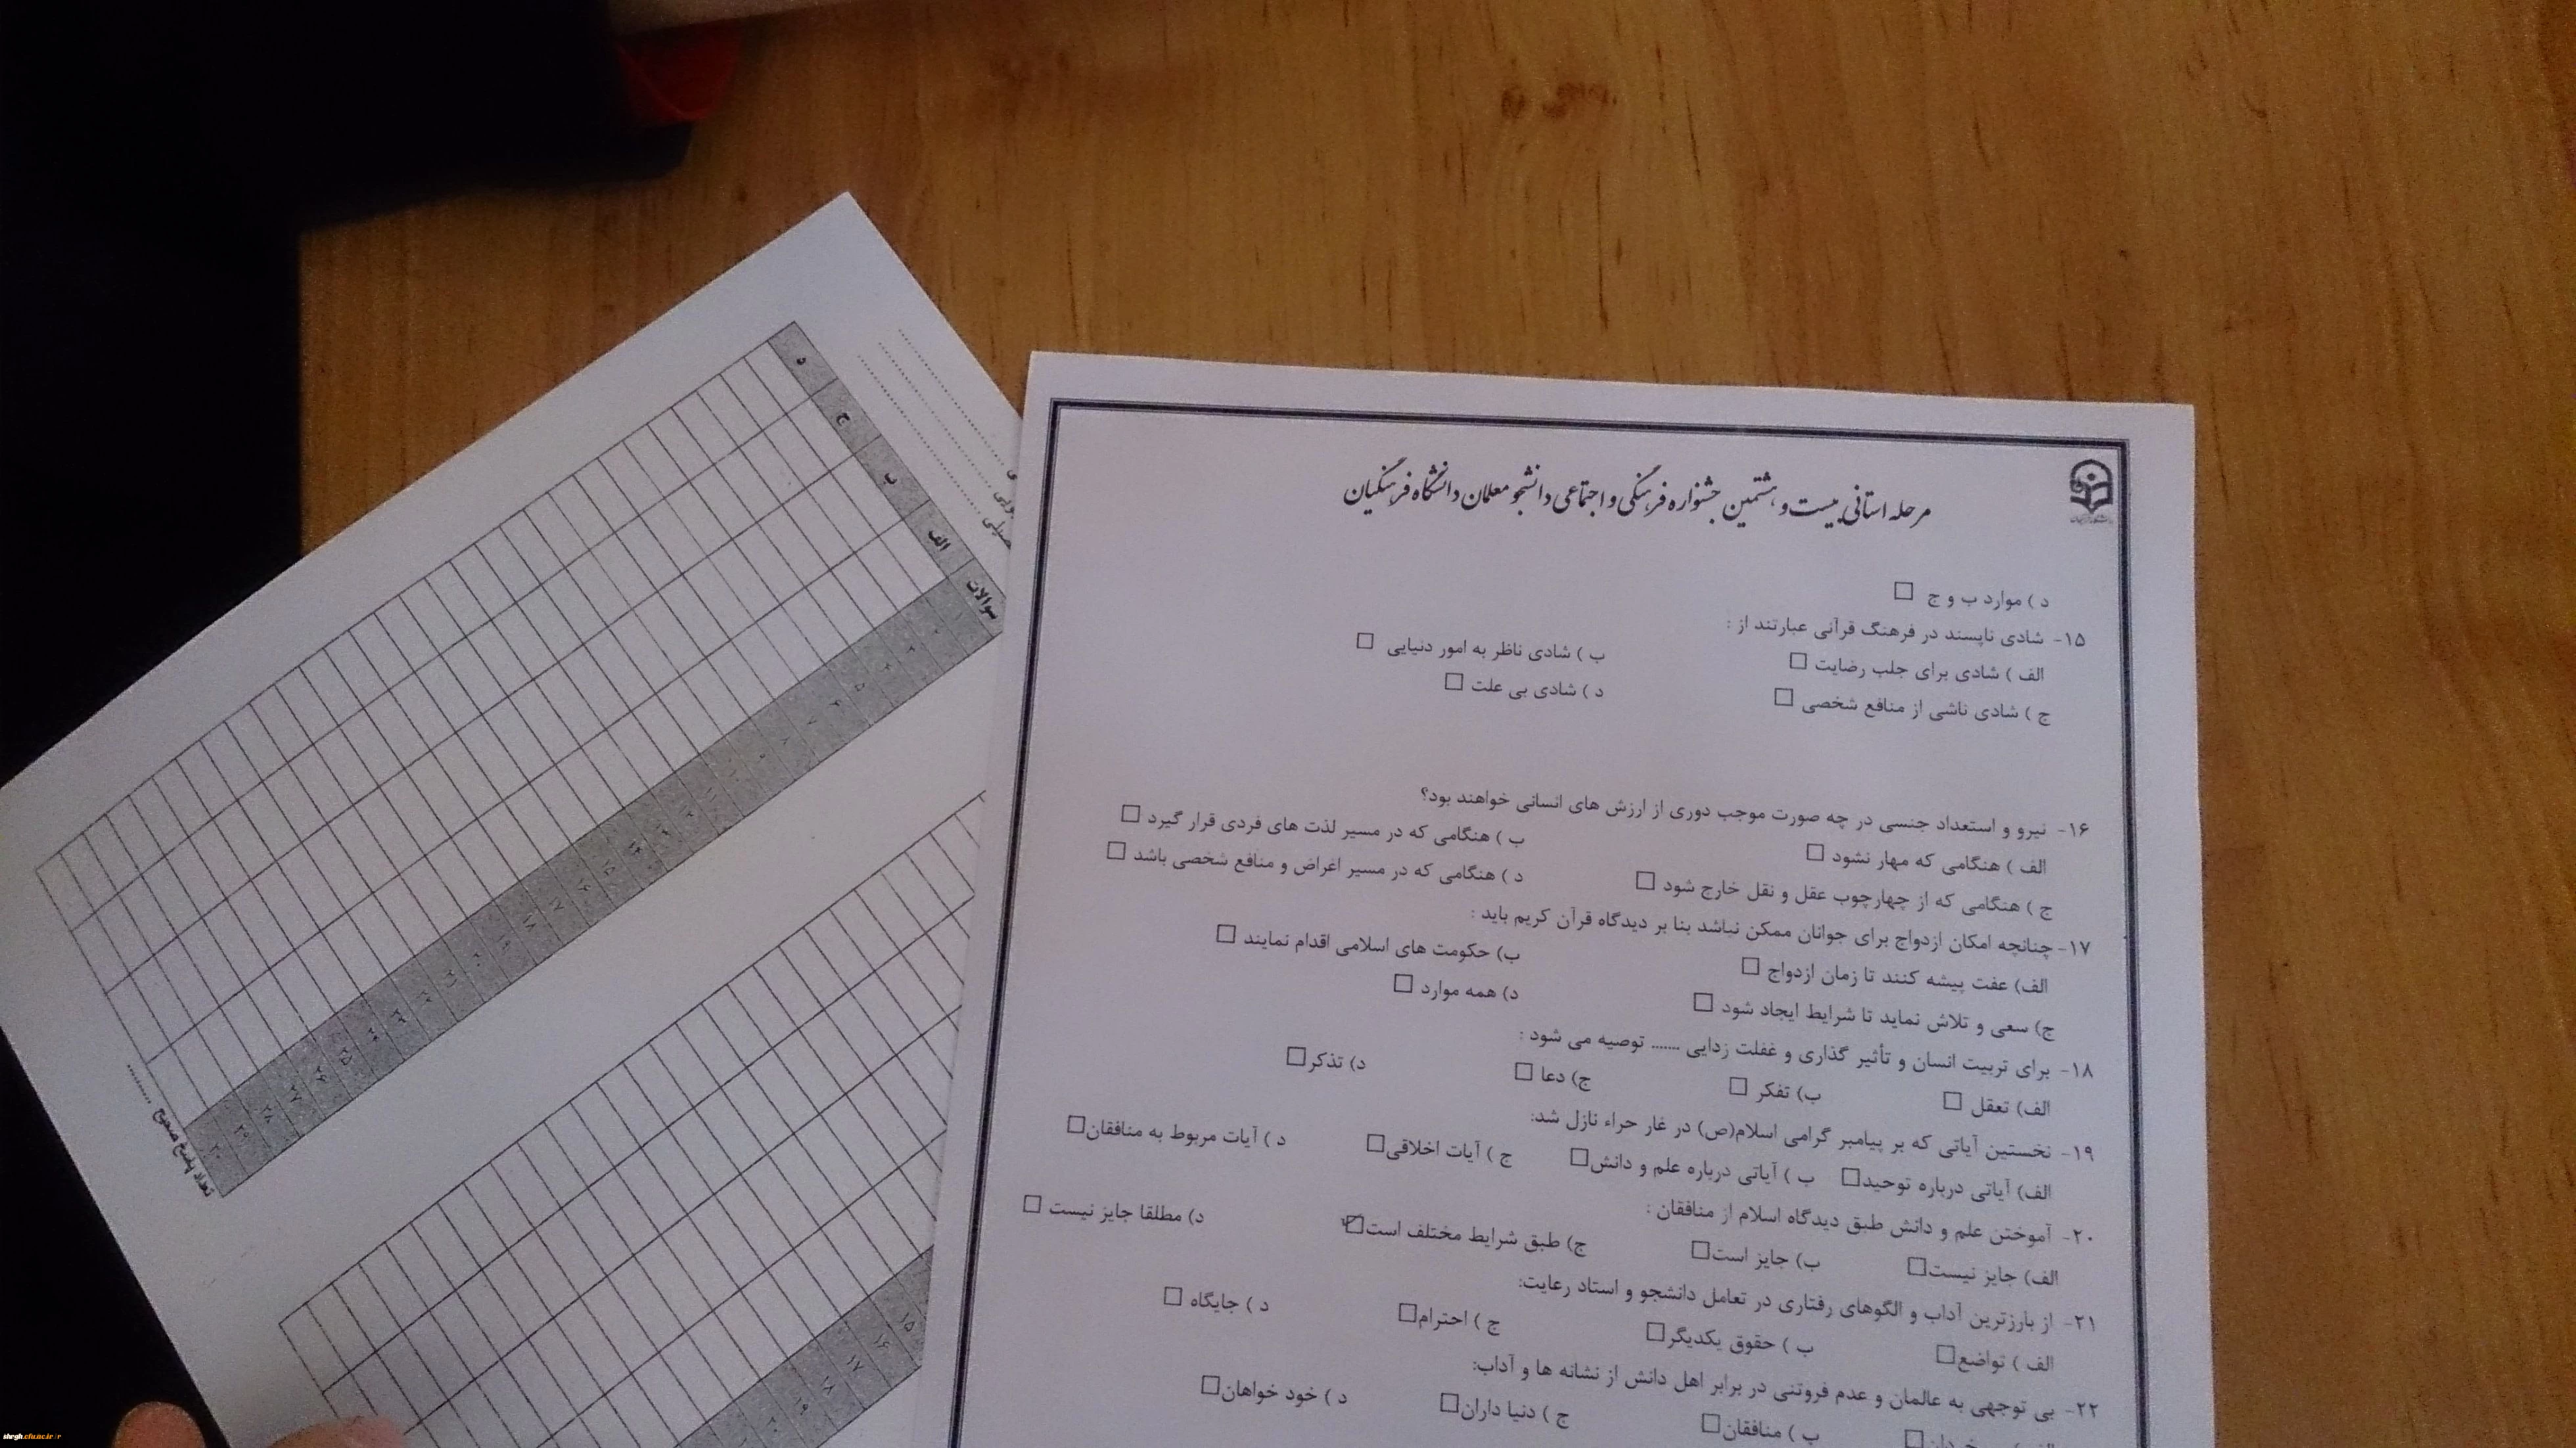 مرحله استانی بیست و هشتمین جشنواره فرهنگی و اجتماعی دانشجو معلمان دانشگاه فرهنگیان
د ) موارد ب و ج
۱۵- شادی ناپسند در فرهنگ قرآنی عبارتند از :
الف ) شادی برای جلب رضایت ب ) شادی ناظر به امور دنیایی
ج ) شادی ناشی از منافع شخصی د ) شادی بی علت
۱۶- نیرو و استعداد جنسی در چه صورت موجب دوری از ارزش های انسانی خواهند بود؟
الف ) هنگامی که مهار نشود ب ) هنگامی که در مسیر لذت های فردی قرار گیرد
ج ) هنگامی که از چهارچوب عقل و نقل خارج شود د ) هنگامی که در مسیر اغراض و منافع شخصی باشد
۱۷- چنانچه امکان ازدواج برای جوانان ممکن نباشد بنا بر دیدگاه قرآن کریم باید :
الف) عفت پیشه کنند تا زمان ازدواج ب) حکومت های اسلامی اقدام نمایند
ج) سعی و تلاش نماید تا شرایط ایجاد شود د) همه موارد
۱۸- برای تربیت انسان و تأثیر گذاری و غفلت زدایی ....... توصیه می شود :
الف) تعقل ب) تفکر ج) دعا د) تذکر
۱۹- نخستین آیاتی که بر پیامبر گرامی اسلام(ص) در غار حراء نازل شد:
الف) آیاتی درباره توحید ب ) آیاتی درباره علم و دانش ج ) آیات اخلاقی د ) آیات مربوط به منافقان
۲۰- آموختن علم و دانش طبق دیدگاه اسلام از منافقان :
الف) جایز نیست ب) جایز است ج) طبق شرایط مختلف است د) مطلقا جایز نیست
۲۱- از بارزترین آداب و الگوهای رفتاری در تعامل دانشجو و استاد رعایت:
الف ) تواضع ب ) حقوق یکدیگر ج ) احترام د ) جایگاه
۲۲- بی توجهی به عالمان و عدم فروتنی در برابر اهل دانش از نشانه ها و آداب:
ب ) منافقان ج ) دنیا داران د ) خود خواهان
سوالات الف ب ج د
۵
۸
۱۵
۱۶
۱۷
۱۸
۲۵
۲۶
۲۷
۲۸
۲۹
تعداد پاسخ صحیح ..........
۱۵
۱۶
۱۷
۱۸
۱۹
shrgh.cfu.ac.ir